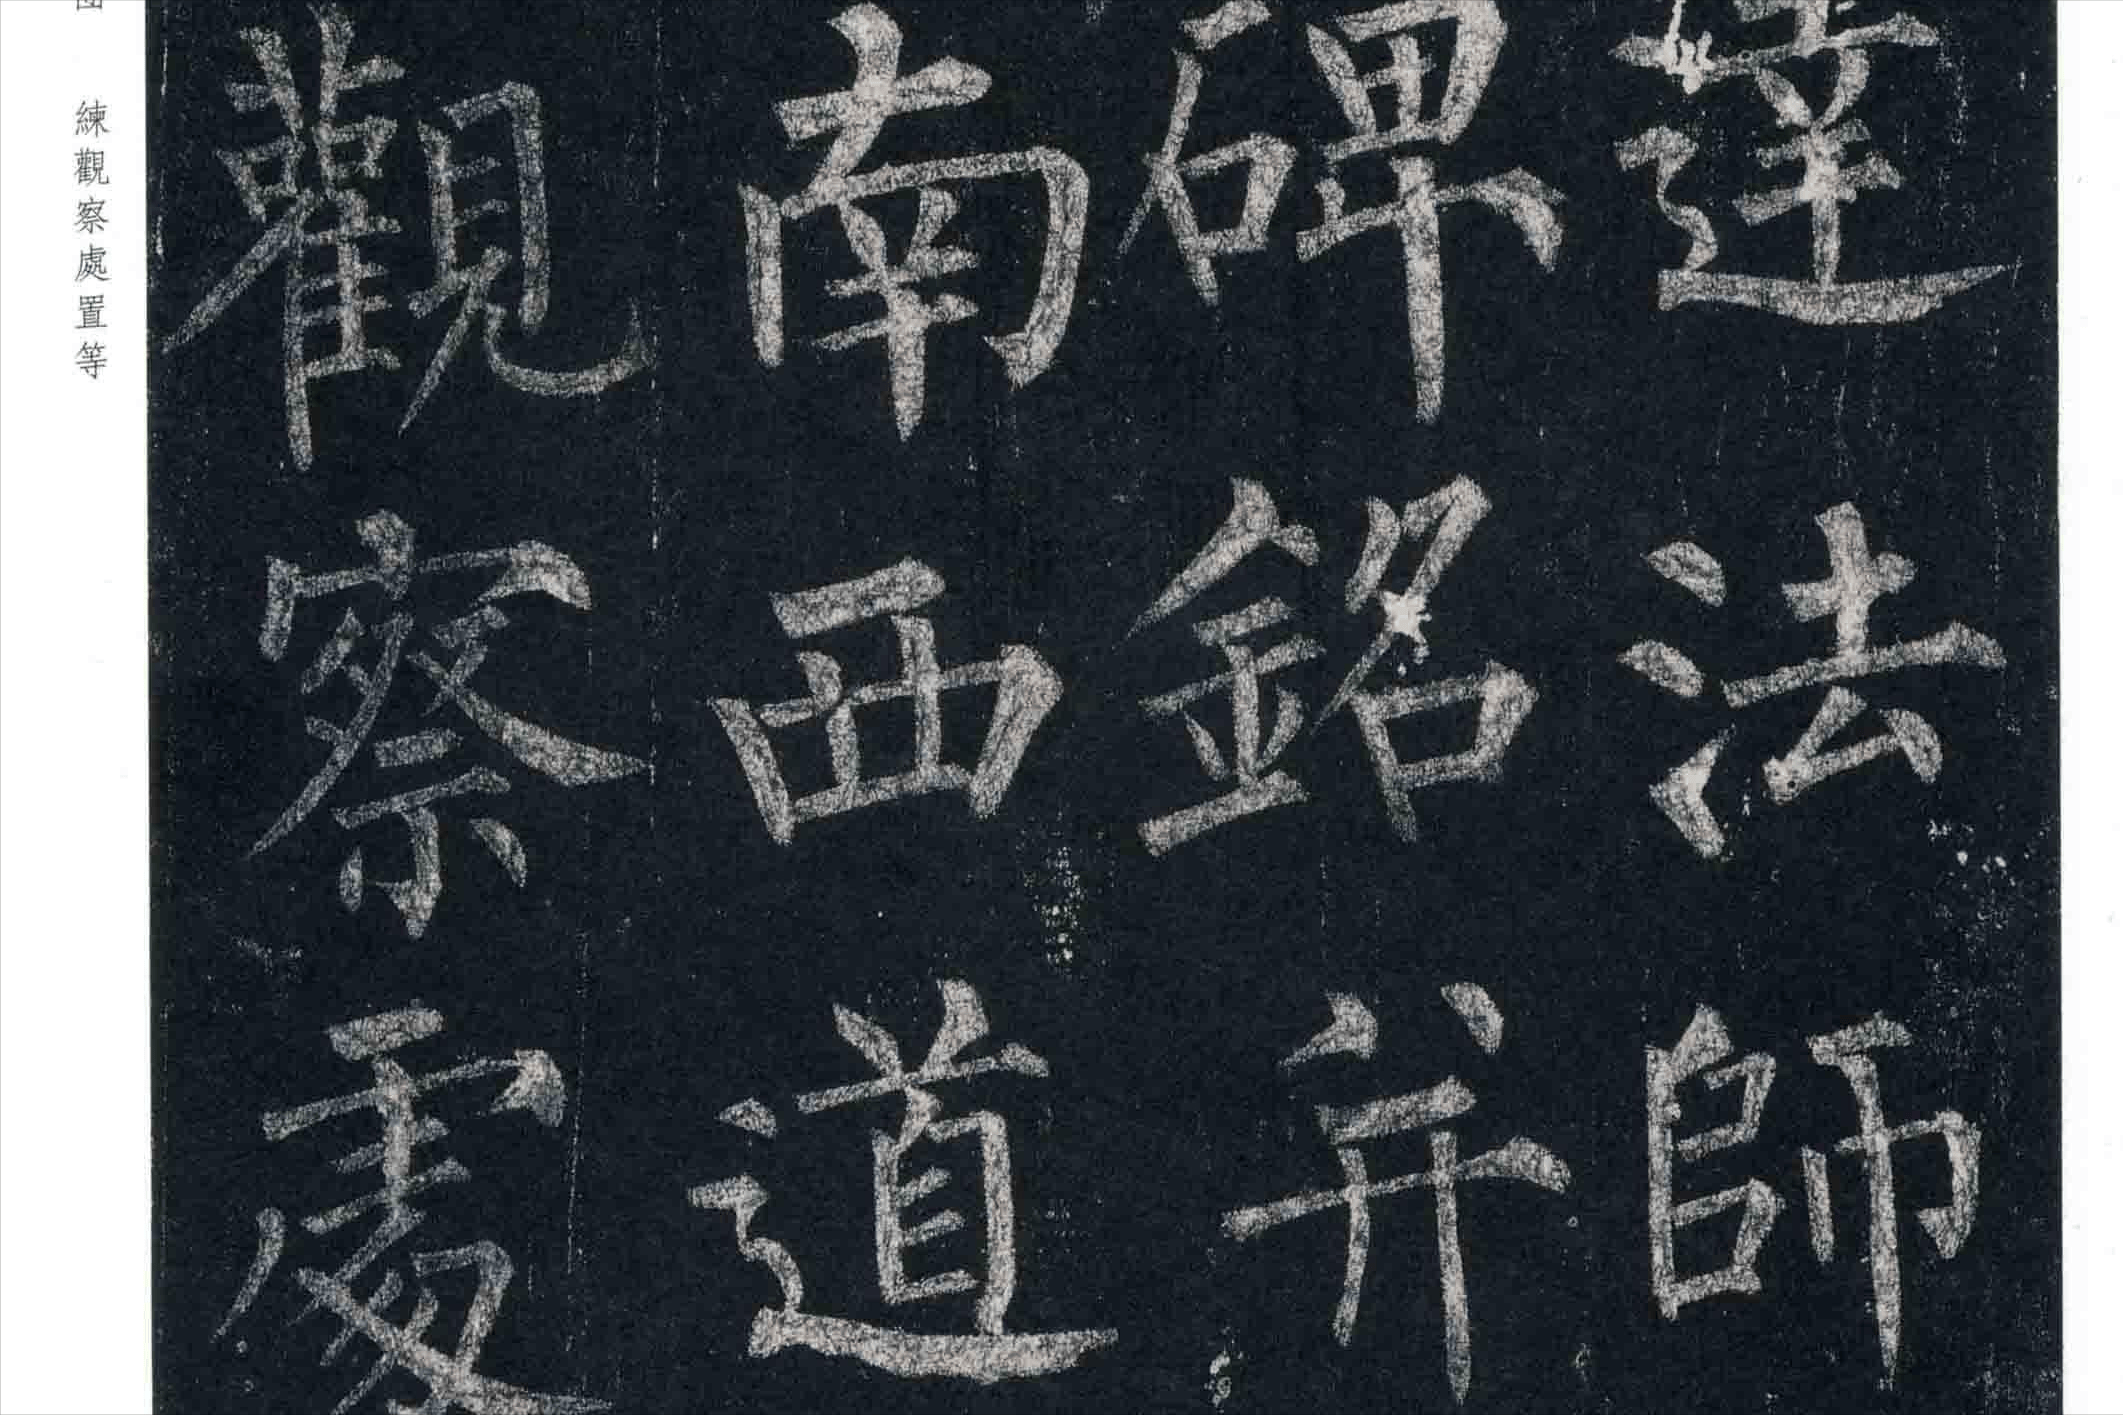 達法師
碑銘并
南西道
觀察處
練觀察處置等